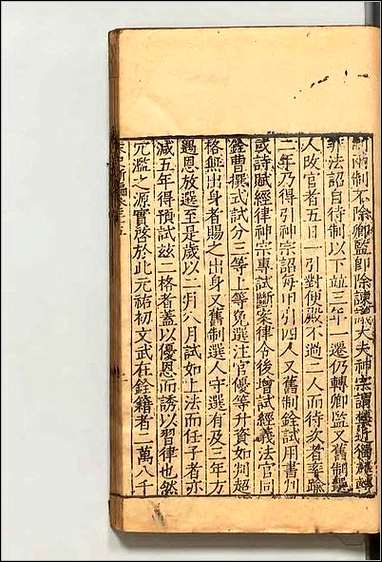 制不除卿監即除諫議大夫神宗
法詔自待制以下竝三年一遷仍轉卿監又舊制
人改官者五日一引對便殿不過二人而待次者率踰
二年乃得引神宗詔每甲引四人又舊制銓試用書判
或詩賦經律神宗專試斷案律令後增試經義法官同
銓曹撰式試分三等上等免選注官優等升資如判超
格無出身者賜之出身又舊制選人守選有及三年方
遇恩放選至是歲以二月八月試如上法而任子者亦
減五年得預試玆二格者蓋以優恩而誘以習律也然
冗濫之源實啓於此元祐初文武在銓籍者二萬八千